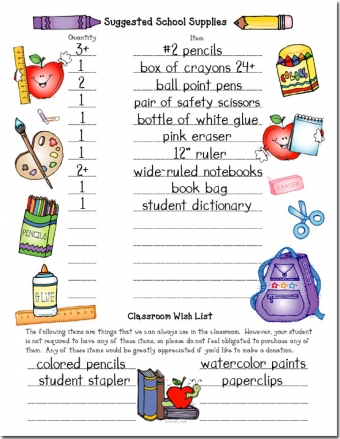 Suggested School Supplies
Quantity Item
3+ #2 pencils
1 box of crayons 24+
2 ball point pens
1 pair of safety scissors
1 bottle of white glue
1 pink eraser
1 12" ruler
2+ wide-ruled notebooks
1 book bag
1 student dictionary
COLORS
PENCILS
GLUE
Classroom Wish List
The following items are things that we can always use in the classroom. However, your student
is not required to have any of these items, so please do not feel obligated to purchase any
of them. Any of these items would be greatly appreciated if you'd like to make a donation.
colored pencils watercolor paints
student stapler paperclips